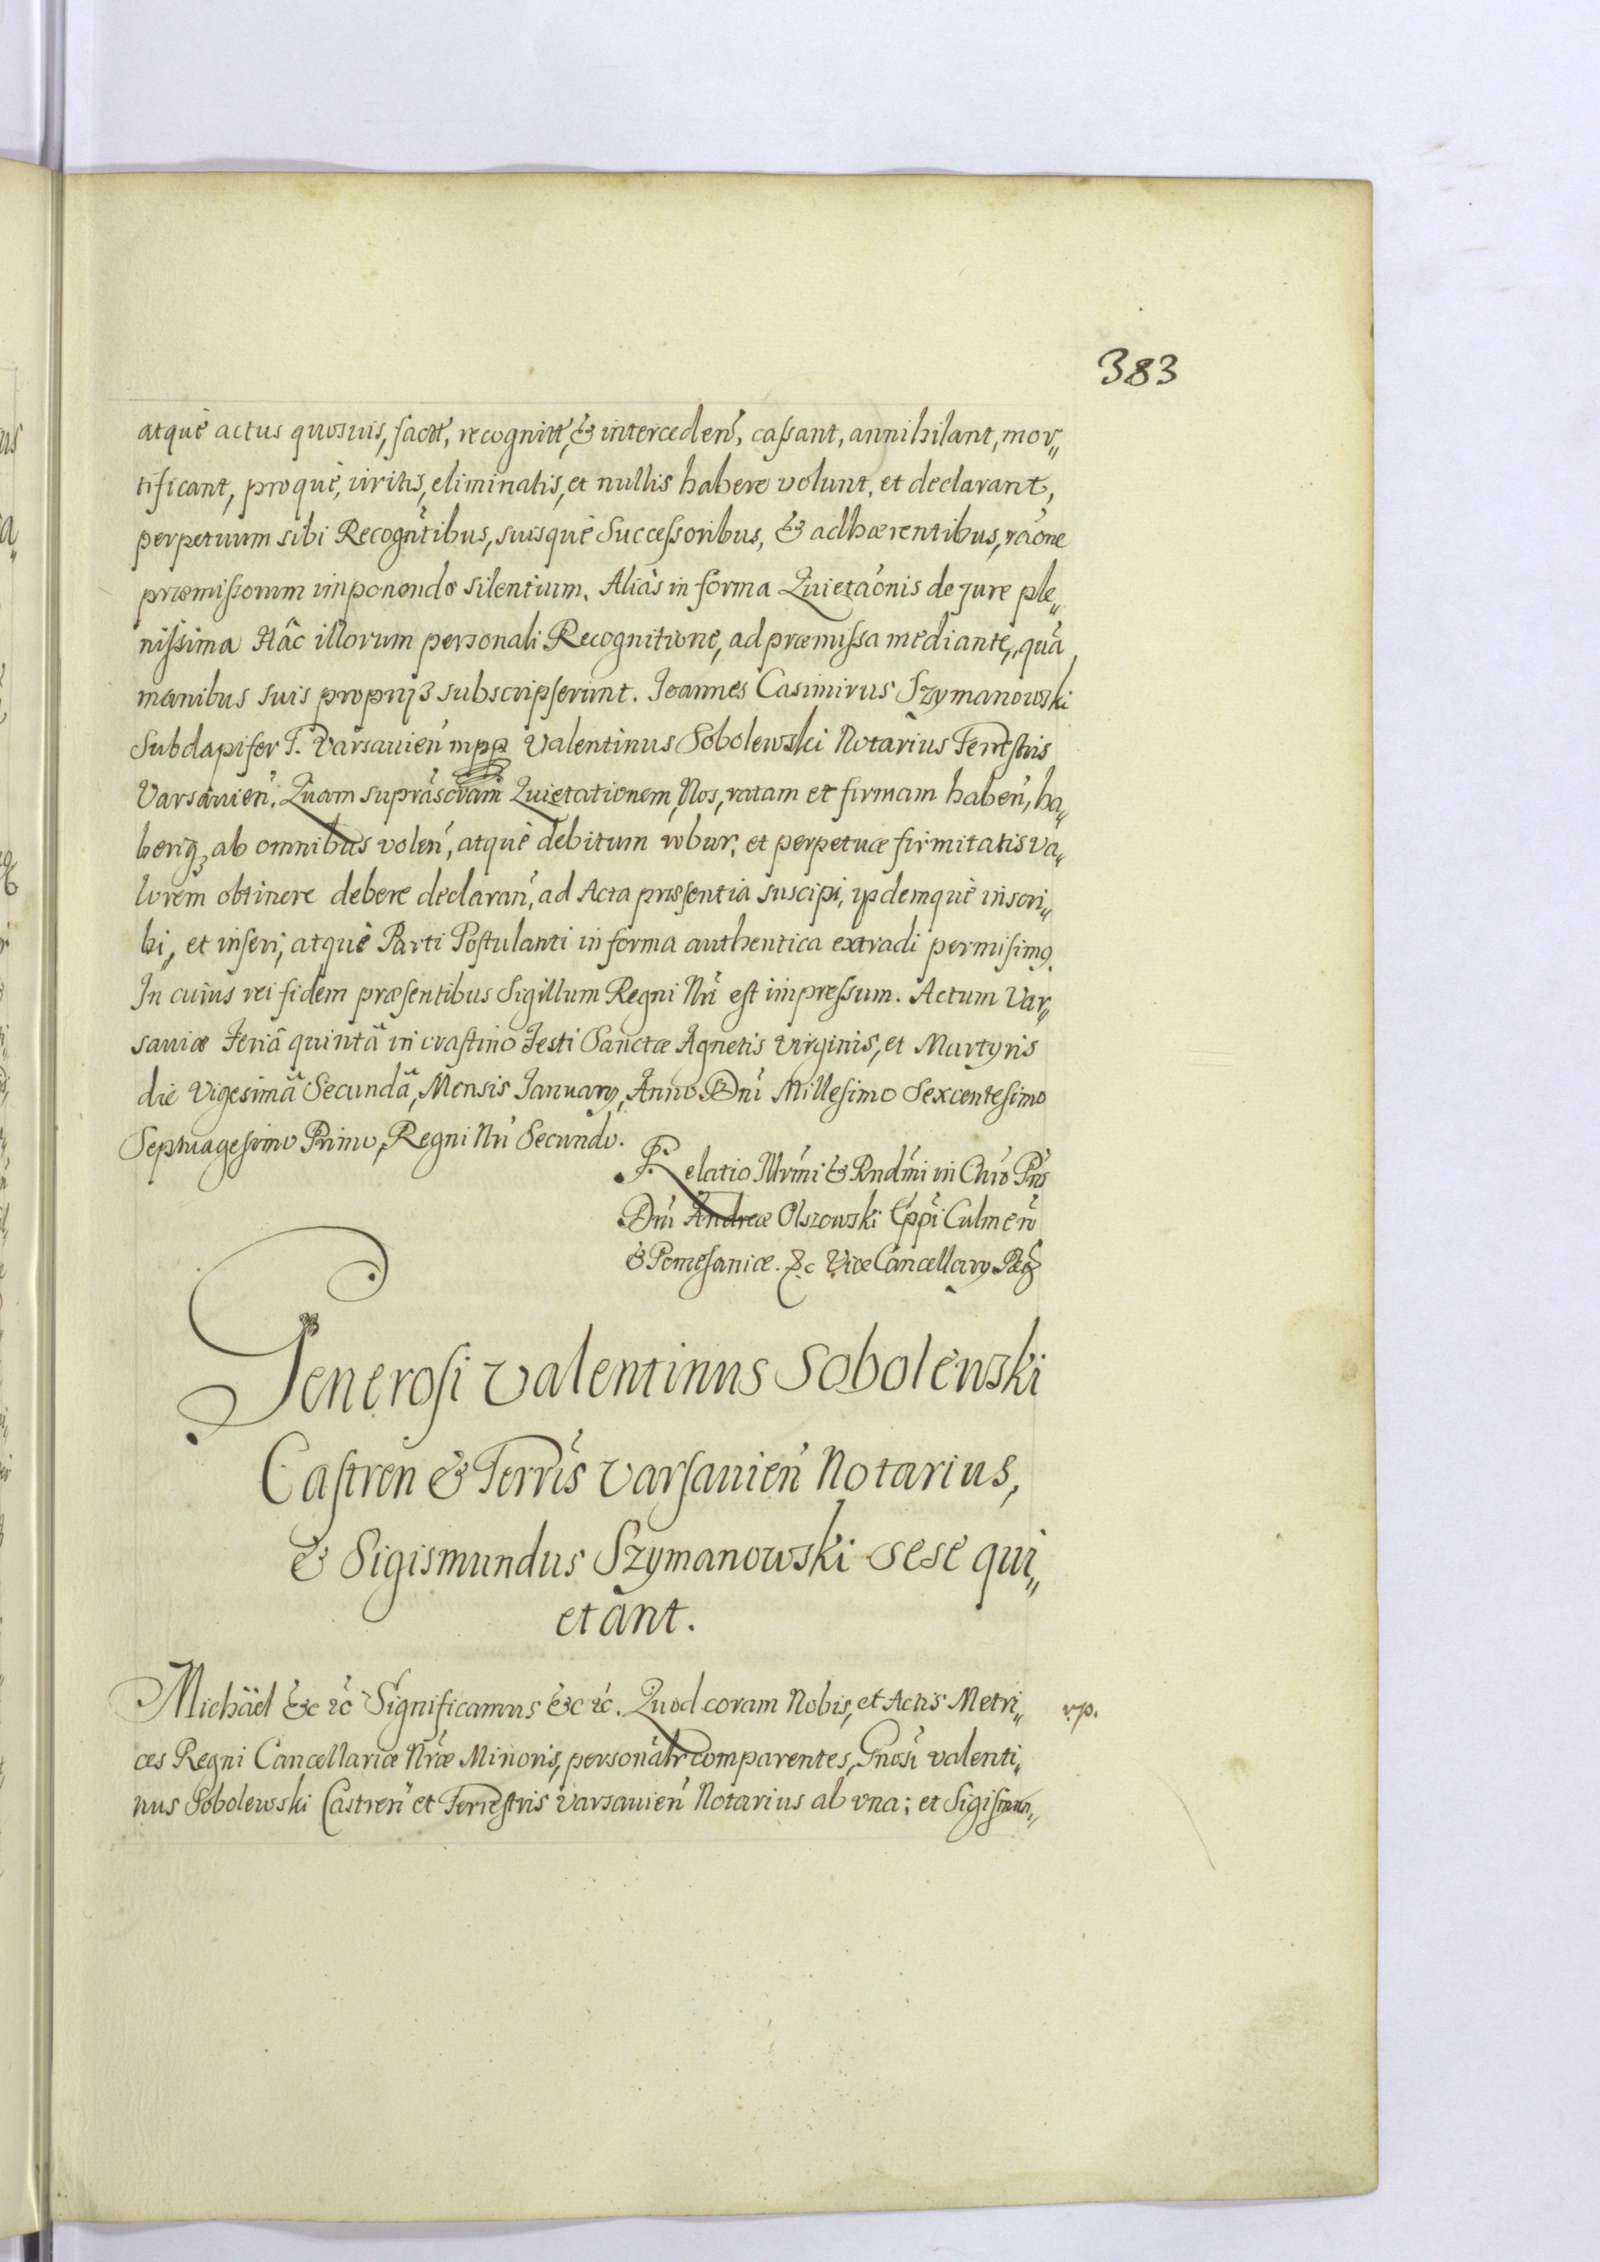 383
atquè actus quosuis, factt, recognitt, & interceden̄, caſsant, annihilant, mor„
tificant, proquè, irritis, eliminatis, et nullis habere volunt, et declarant,
perpetuum sibi Recogn̄tibus, suisquè Succeſsoribus, & adhærentibus, rāone
præmiſsorum imponendo silentium. Aliàs in forma Quietaōnis de jure ple„
niſsima Hâc illorum personali Recognitione, ad præmiſsa mediante, quâ
manibus suis proprijs subscripſerunt. Joannes Casimirus Szymanowski
Subdapifer T. Varsauien̄ mpp Valentinus Sobolewski Notarius Terrestris
Varsauien̄. Quam suprascr̄am Quietationem, Nos, ratam et firmam haben̄, ha„
beriq₃ ab omnibus volen̄, atquè debitum robur, et perpetuæ firmitatis va„
lorem obtinere debere declaran̄, ad Acta præsentia suscipi, ijsdemquè inscri„
bi, et inseri, atquè Parti Poſtulanti in forma authentica extradi permisimꝰ.
In cuius rei fidem præſentibus Sigillum Regni Nr̄i eſt impreſsum. Actum Var„
sauiæ Feriâ quintâ in craſtino Feſti Sanctæ Agnetis Virginis, et Martyris
die Vigesimâ Secundâ, Mensis Januarij, Anno Dn̄i Milleſimo Sexcenteſimo
Septuageſimo Primo, Regni Nr̄i Secundo.
Relatio Illrm̄i & Rndm̄i in Chr̄o Pr̄is
Dn̄i Andreæ Olszowski Ep̄pi Culmen̄
& Pomeſaniæ. &c Vice Cancellarij Reg̃
Generoſi Valentinus Sobolewski
Caſtren & Terris̄ Varſauien̄ Notarius,
& Sigismundus Szymanowski sese qui„
etant.
Michäel &c ꝛc Significamus &c ꝛc. Quod coram Nobis, et Actis Metri„
rp.
ces Regni Cancellariæ Nr̄æ Minoris, personalr̄ comparentes, Gnosi valenti„
nus Sobolewski Caſtren̄ et Terreſtris Varsauien̄ Notarius ab vna; et Sigiſmun„